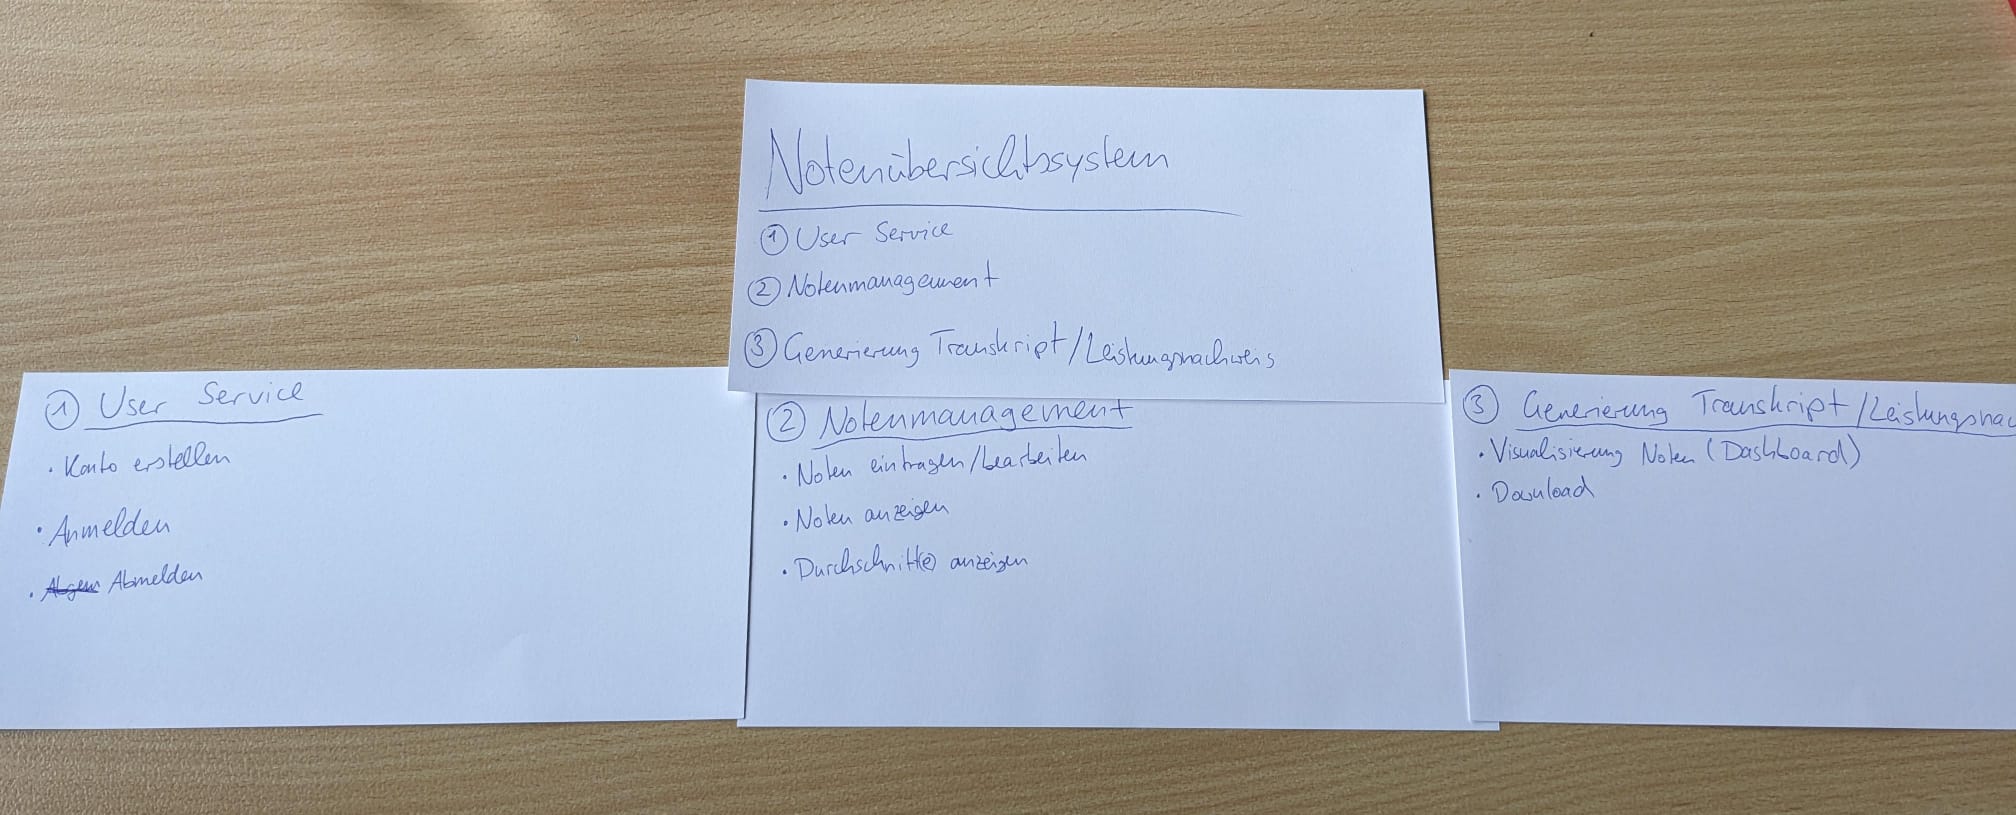 Notenübersichtssystem
① User Service
② Notenmanagement
③ Generierung Transkript/Leistungsnachweis
① User Service
· Konto erstellen
· Anmelden
· Abmelden
② Notenmanagement
· Noten eintragen/bearbeiten
· Noten anzeigen
· Durchschnitt(e) anzeigen
③ Generierung Transkript/Leistungsnac
· Visualisierung Noten (Dashboard)
· Download